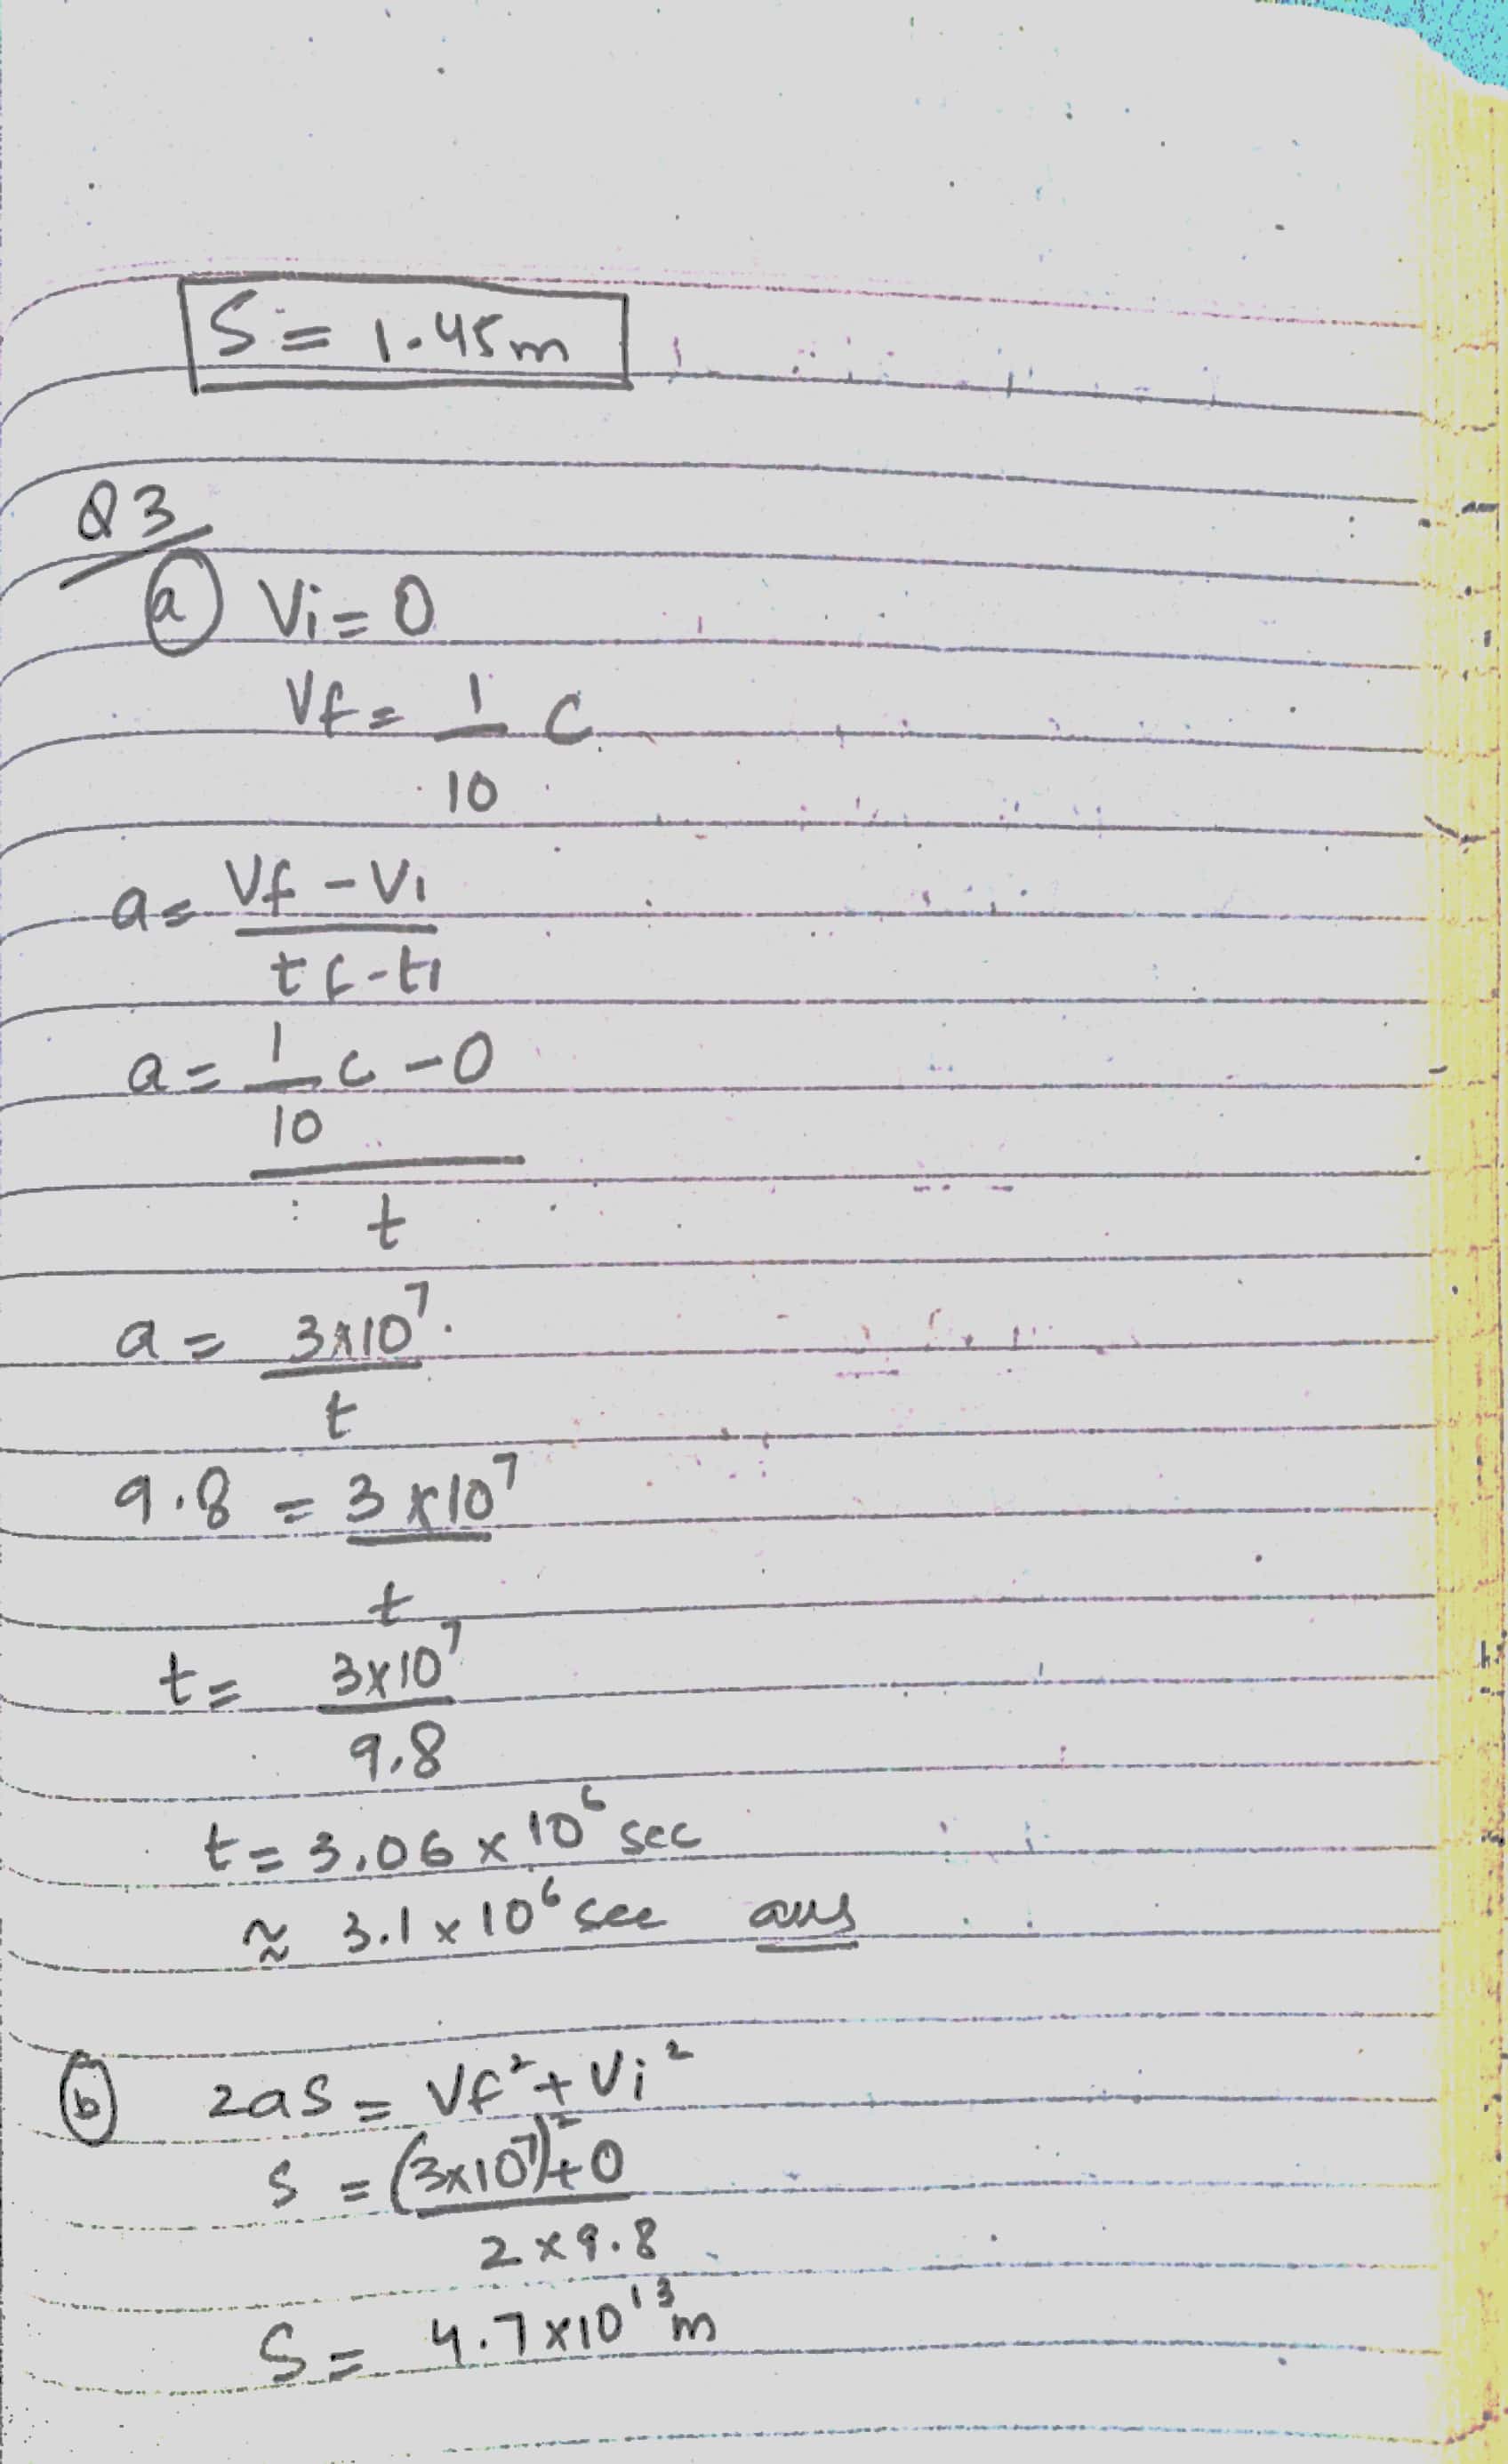 S = 1.45m
Q3
(a) Vi = 0
Vf = 1/10 C
a = Vf - Vi / tf - ti
a = 1/10 c - 0 / t
a = 3x10⁷ / t
9.8 = 3x10⁷ / t
t = 3x10⁷ / 9.8
t = 3.06 x 10⁶ sec
≈ 3.1 x 10⁶ sec ans
(b) 2aS = Vf² + Vi²
S = (3x10⁷)² + 0 / 2 x 9.8
S = 4.7x10¹³ m